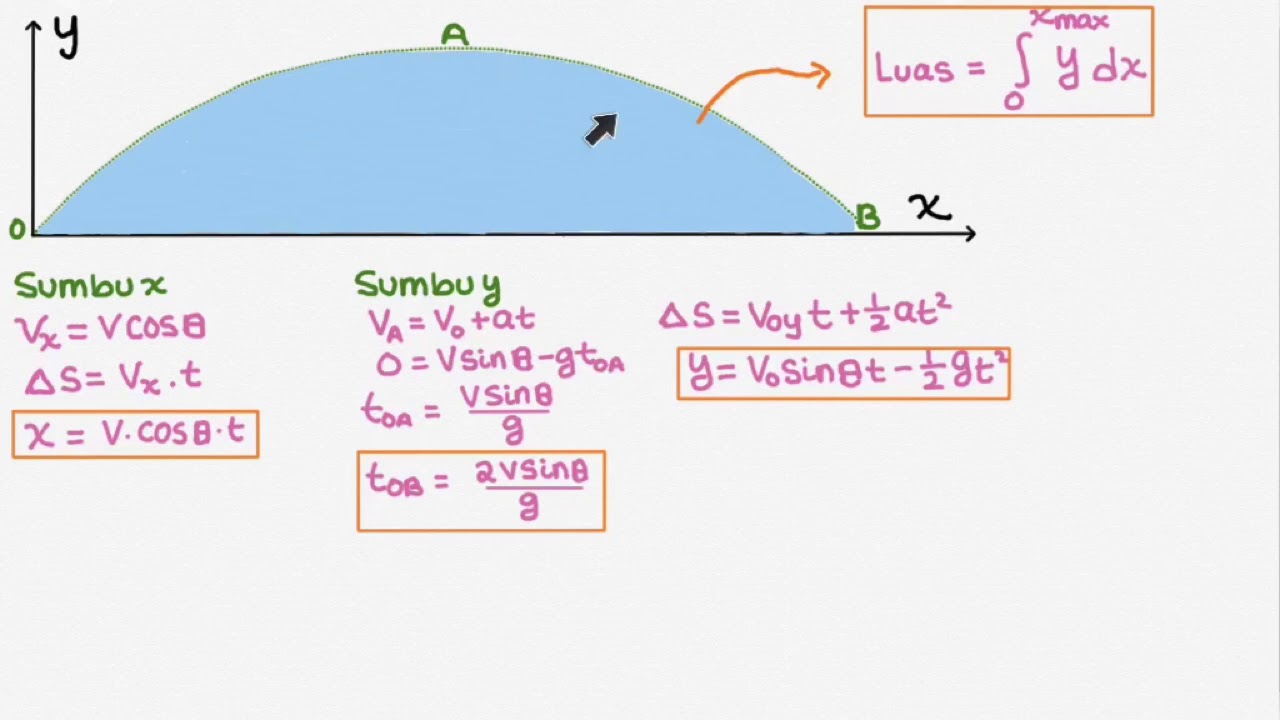 y
A
Luas = ∫₀^xmax y dx
O
B
x
Sumbu x
Vx = V cos θ
Δ S = Vx . t
x = V . cos θ . t
Sumbu y
VA = Vo + at
0 = V sin θ – g tOA
tOA = V sin θ / g
tOB = 2 V sin θ / g
Δ S = Voy t + ½ at²
y = Vo Sin θ t – ½ g t²